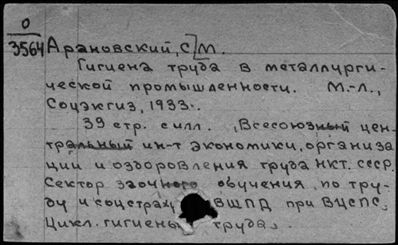 0
3564
Арановский, С]М.
Гигиена труда в металлурги-
ческой промышленности. М.-Л.,
Соцэкгиз, 1933.
39 стр. с илл. (Всесоюзный цен-
тральный ин-т экономики, организа
ции и оздоровления труда НКТ. СССР.
Сектор заочного обучения по тру-
ду и соцстраху ВШПД при ВЦСПС.
Цикл. гигиены труда.